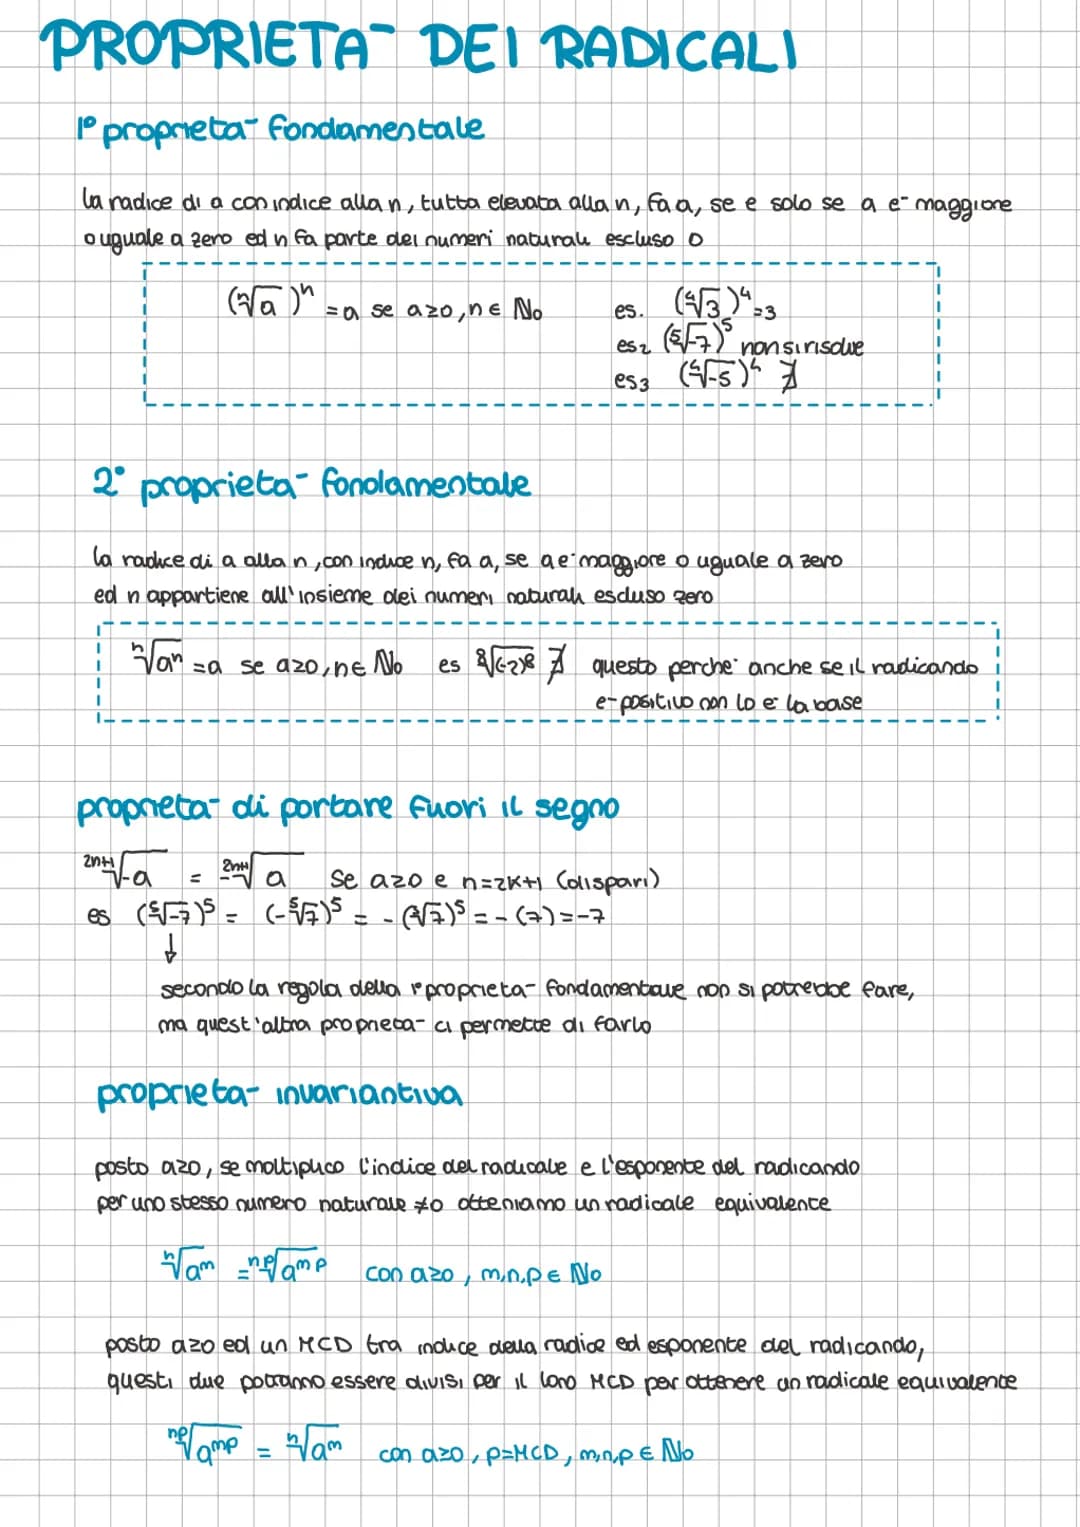 PROPRIETA- DEI RADICALI
1° proprieta- fondamentale
la radice di a con indice alla n, tutta elevata alla n, fa a, se e solo se a e- maggiore
o uguale a zero ed n fa parte dei numeri naturali escluso 0
(ⁿ√a)ⁿ =a se a≥0, n∈ N₀ es. (⁴√3)⁴=3
es2 (⁵√-7)⁵ non si risolve
es3 (⁴√-5)⁴ ∄
2° proprieta- fondamentale
la radice di a alla n, con indice n, fa a, se a e- maggiore o uguale a zero
ed n appartiene all'insieme dei numeri naturali escluso zero
ⁿ√aⁿ =a se a≥0, n∈ N₀ es ⁸√(-2)⁸ ∄ questo perche' anche se il radicando
e- positivo non lo e' la base
proprieta- di portare fuori il segno
²ⁿ⁺¹√-a = -²ⁿ⁺¹√a se a≥0 e n=2k+1 (dispari)
es (⁵√-7)⁵ = (-⁵√7)⁵ = -(⁵√7)⁵ = -(7)=-7
↓
secondo la regola della 1° proprieta- fondamentale non si potrebbe fare,
ma quest'altra proprieta- ci permette di farlo
proprieta- invariantiva
posto a≥0, se moltiplico l'indice del radicale e l'esponente del radicando
per uno stesso numero naturale ≠0 otteniamo un radicale equivalente
ⁿ√aᵐ = ⁿᵖ√aᵐᵖ con a≥0, m,n,p∈ N₀
posto a≥0 ed un MCD tra indice della radice ed esponente del radicando,
questi due potranno essere divisi per il loro MCD per ottenere un radicale equivalente
ⁿᵖ√aᵐᵖ = ⁿ√aᵐ con a≥0, p=MCD, m,n,p∈ N₀